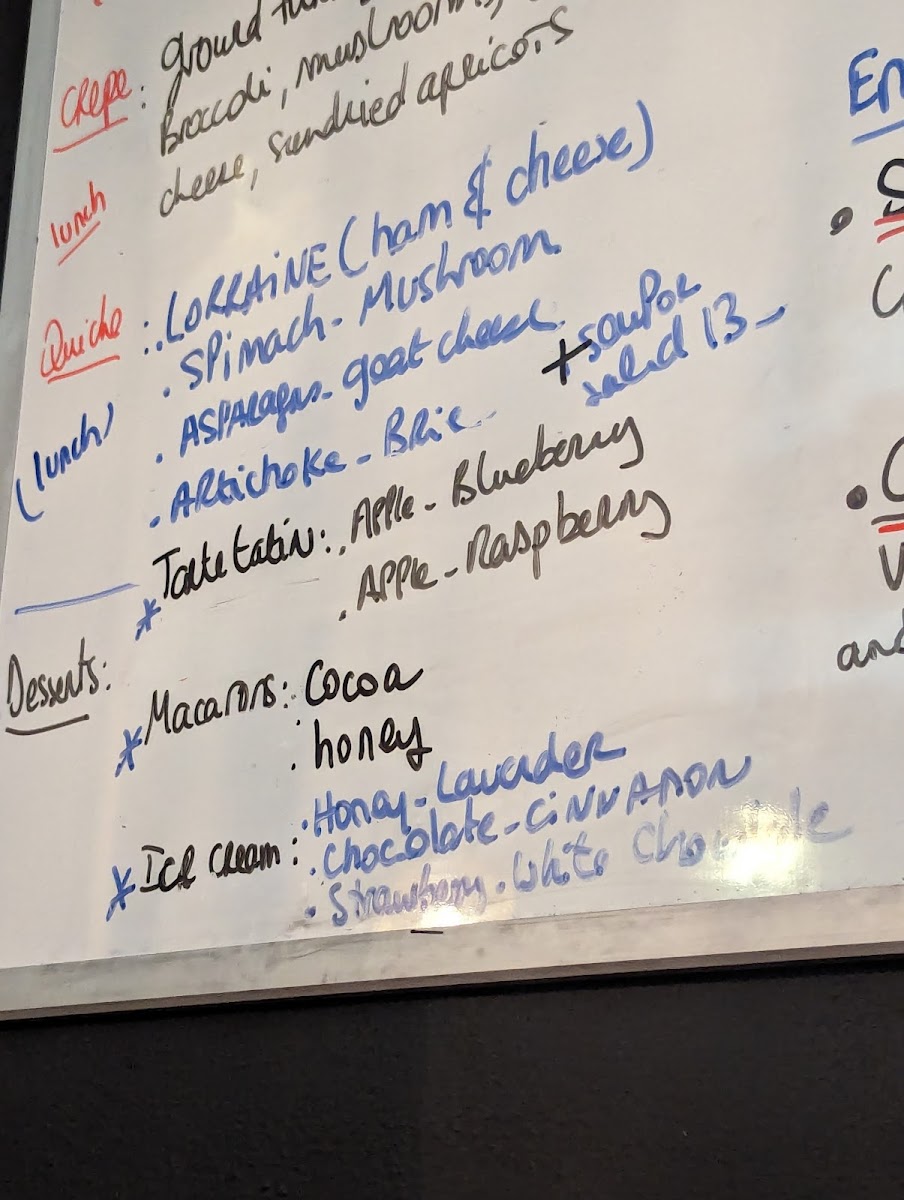 Crepe: ground
Broccoli, mushrooms,
lunch cheese, sundried apricots
Quiche: . LORRAINE (ham & cheese)
. Spinach - Mushroom
(lunch) . ASPARAgus - goat cheese + soup or
. ARtichoke - Brie salad 13 -
* Tarte tatin: . Apple - Blueberry
. Apple - Raspberry
Desserts:
* Macarons: . Cocoa
. honey
. Honey - Lavender
* Ice cream: . Chocolate - CiNNAMON
. Strawberry . White Chocolate
En
and